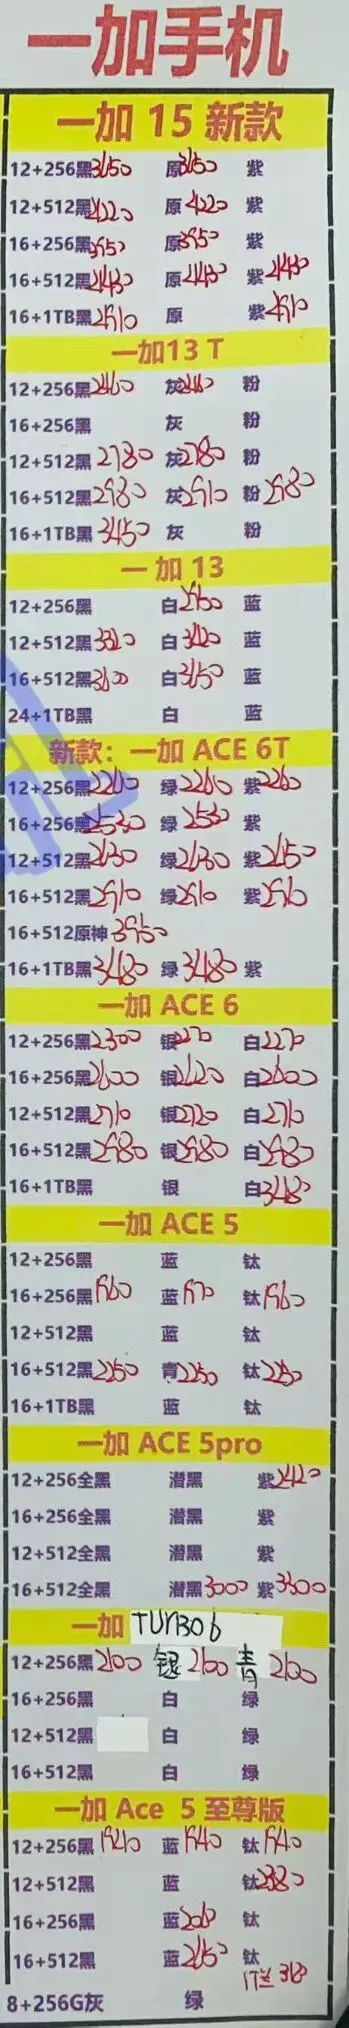 一加手机
一加 15 新款
12+256黑3650 原3650 紫
12+512黑4220 原4220 紫
16+256黑3950 原3950 紫
16+512黑4430 原4430 紫4430
16+1TB黑4910 原 紫4910
一加13 T
12+256黑2460 灰2460 粉
16+256黑 灰 粉
12+512黑2780 灰2780 粉
16+512黑2980 灰2910 粉2980
16+1TB黑3450 灰 粉
一加 13
12+256黑 白2950 蓝
12+512黑3320 白3420 蓝
16+512黑3600 白3650 蓝
24+1TB黑 白 蓝
新款：一加 ACE 6T
12+256黑2260 绿2260 紫2260
16+256黑2530 绿2530 紫
12+512黑2630 绿2630 紫2650
16+512黑2910 绿2910 紫2910
16+512原神3950
16+1TB黑3480 绿3480 紫
一加 ACE 6
12+256黑2300 银2270 白2270
16+256黑2600 银2620 白2600
12+512黑2710 银2720 白2710
16+512黑2980 银2980 白2980
16+1TB黑 银 白3480
一加 ACE 5
12+256黑 蓝 钛
16+256黑1960 蓝1970 钛1960
12+512黑 蓝 钛
16+512黑2250 青2250 钛2250
16+1TB黑 蓝 钛
一加 ACE 5pro
12+256全黑 潜黑 紫2420
16+256全黑 潜黑 紫
12+512全黑 潜黑 紫
16+512全黑 潜黑3000 紫3300
一加 TURBO 6
12+256黑2100 银2100 青2100
16+256黑 白 绿
12+512黑 白 绿
16+512黑 白 绿
一加 Ace 5 至尊版
12+256黑1940 蓝1940 钛1940
12+512黑 蓝 钛2380
16+256黑 蓝2060 钛
16+512黑 蓝2650 钛
8+256G灰 绿